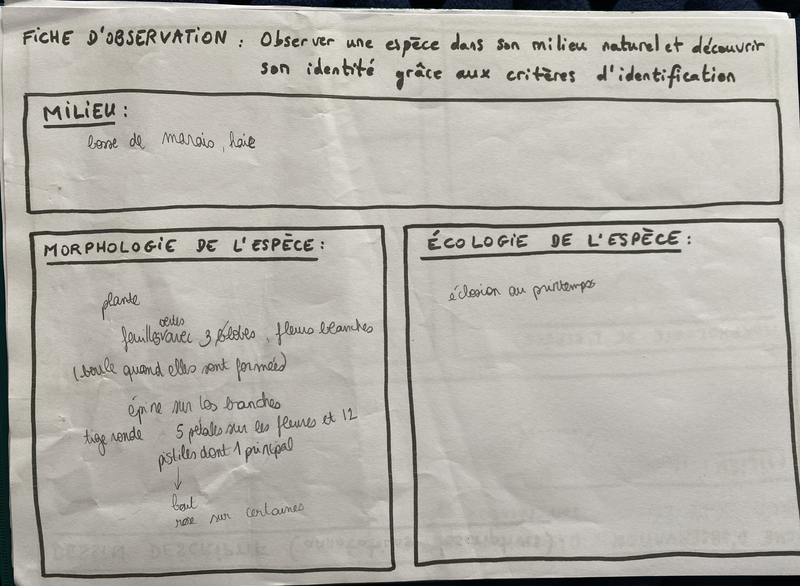 FICHE D'OBSERVATION : Observer une espèce dans son milieu naturel et découvrir
son identité grâce aux critères d'identification
MILIEU :
basse de marais, haie
MORPHOLOGIE DE L'ESPÈCE :
plante
vertes
feuilles avec 3 lobes, fleurs blanches
(boule quand elles sont formées)
épine sur les branches
tige ronde 5 pétales sur les fleures et 12
pistiles dont 1 principal
↓
bout
rose sur certaines
ÉCOLOGIE DE L'ESPÈCE :
éclosion au printemps